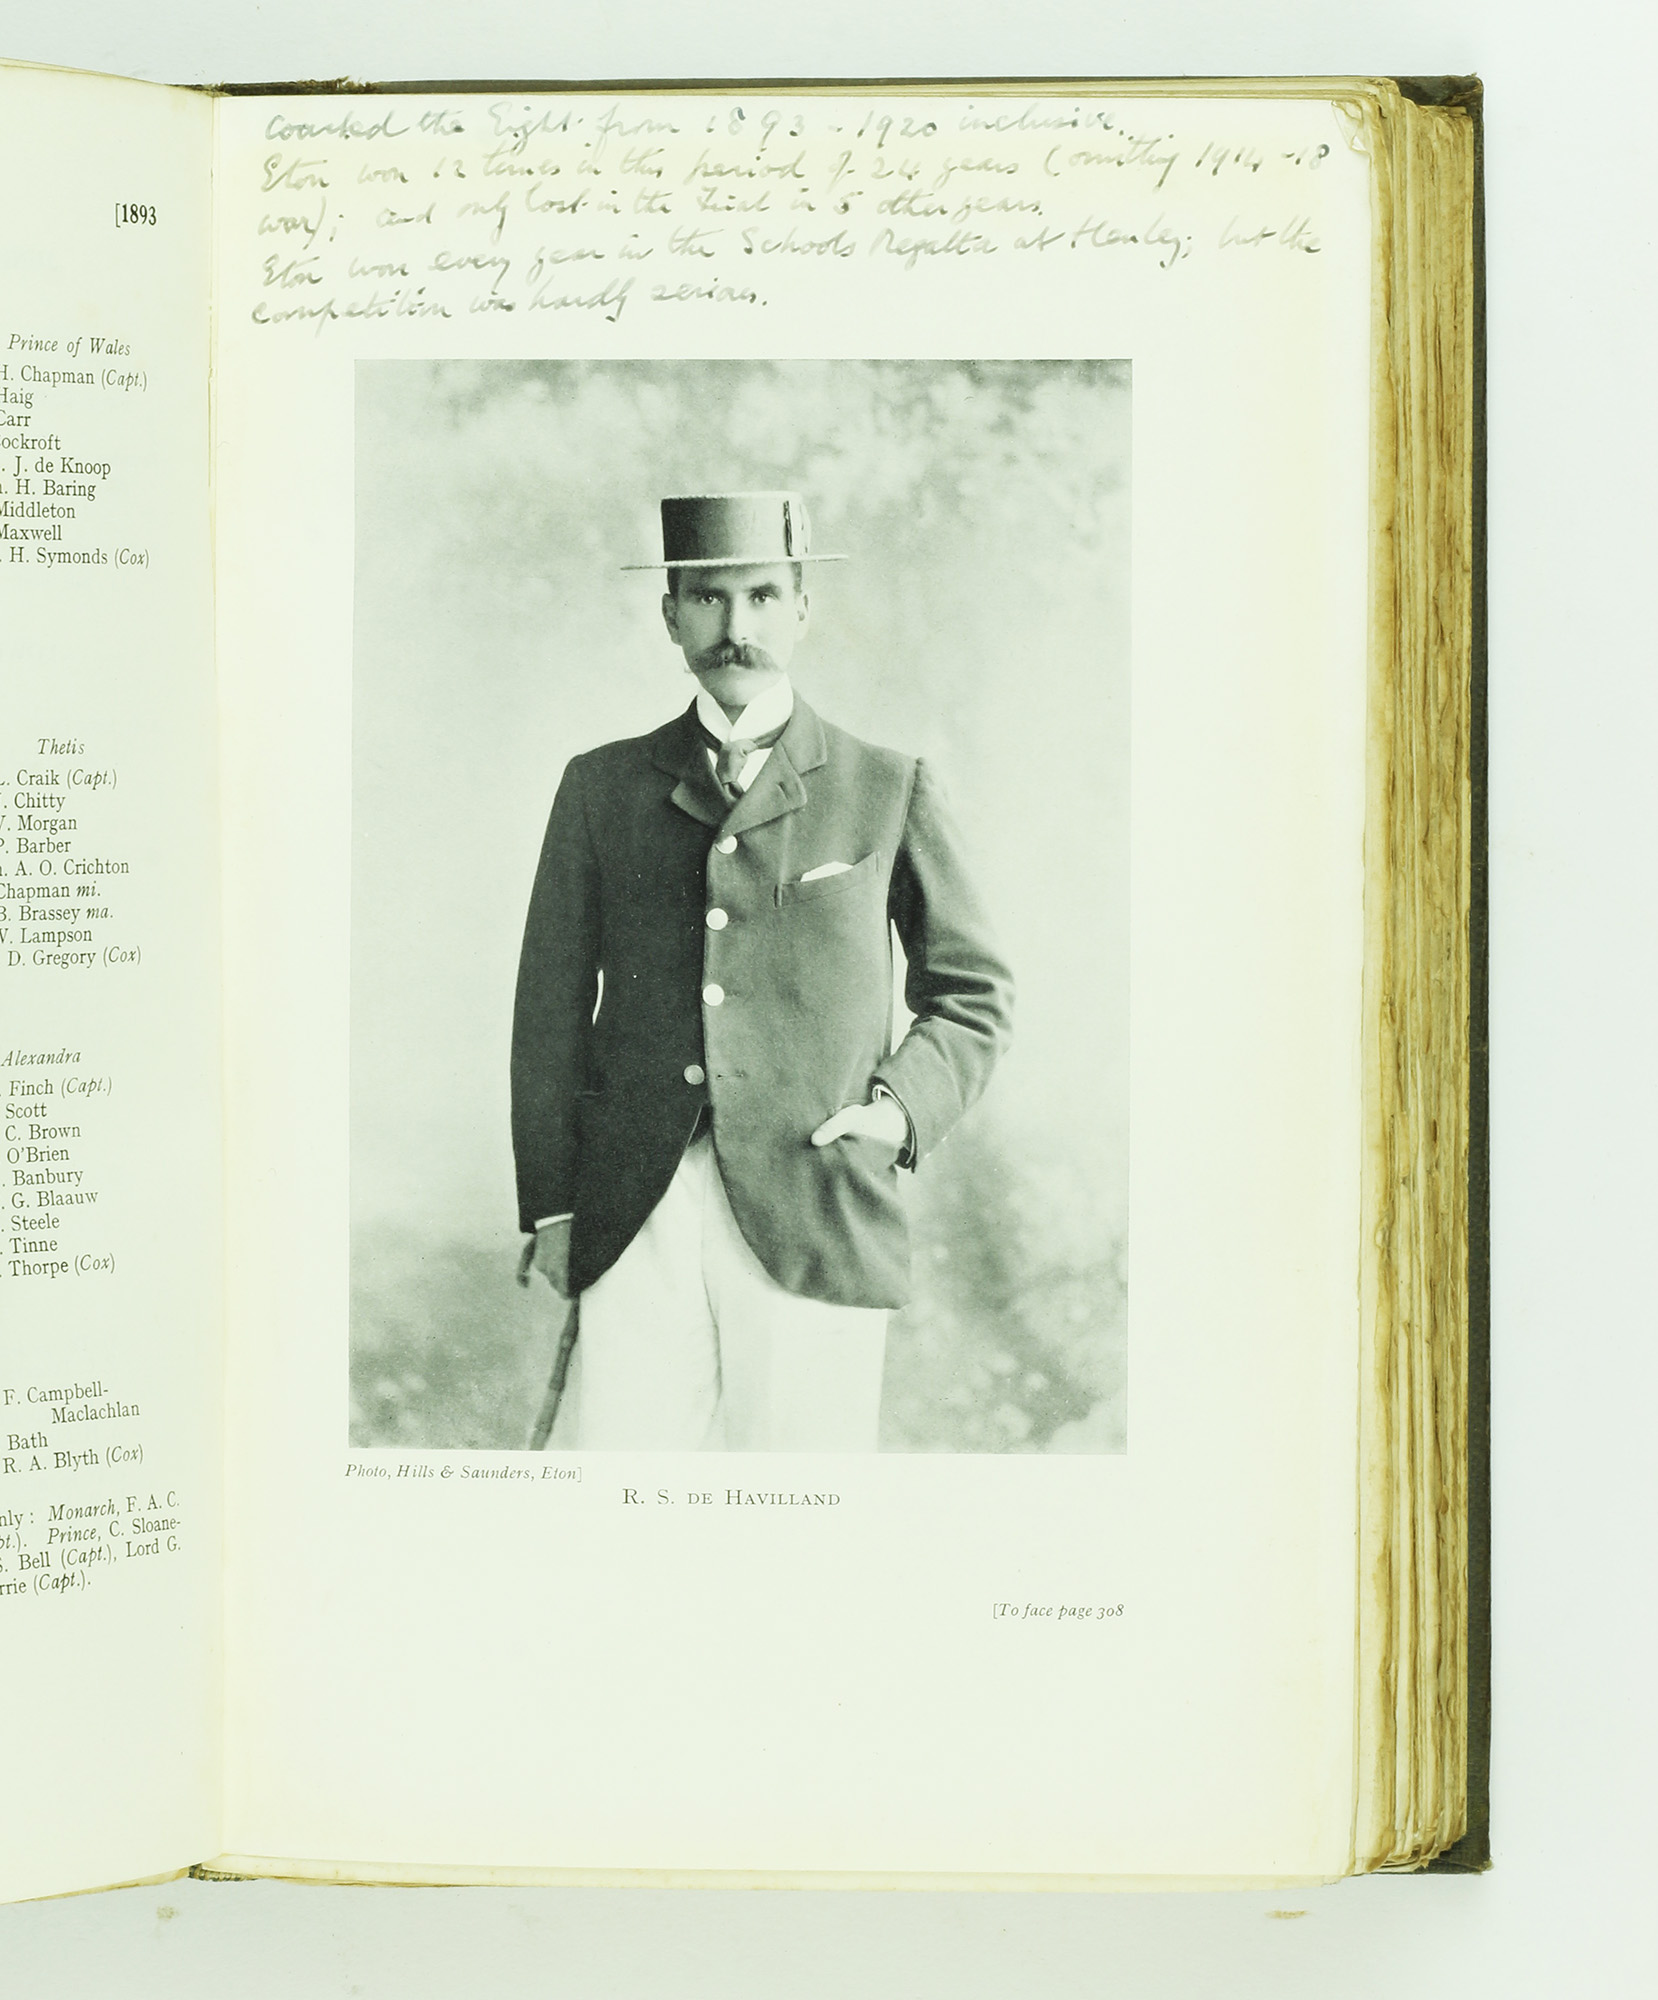 [1893
Prince of Wales
H. Chapman (Capt.)
Haig
Carr
ockroft
. J. de Knoop
. H. Baring
Middleton
Maxwell
. H. Symonds (Cox)
Thetis
L. Craik (Capt.)
. Chitty
. Morgan
P. Barber
. A. O. Crichton
Chapman mi.
B. Brassey ma.
. Lampson
D. Gregory (Cox)
Alexandra
. Finch (Capt.)
Scott
C. Brown
O'Brien
. Banbury
. G. Blaauw
. Steele
. Tinne
. Thorpe (Cox)
F. Campbell-
Maclachlan
Bath
R. A. Blyth (Cox)
nly : Monarch, F. A. C.
pt.). Prince, C. Sloane-
S. Bell (Capt.), Lord G.
rrie (Capt.).
coached the Eight from 1893 - 1920 inclusive.
Eton won 12 times in this period of 24 years (omitting 1914-18
war); and only lost in the Final in 5 other years.
Eton won every year in the Schools Regatta at Henley; but the
competition was hardly serious.
Photo, Hills & Saunders, Eton]
R. S. DE HAVILLAND
[To face page 308